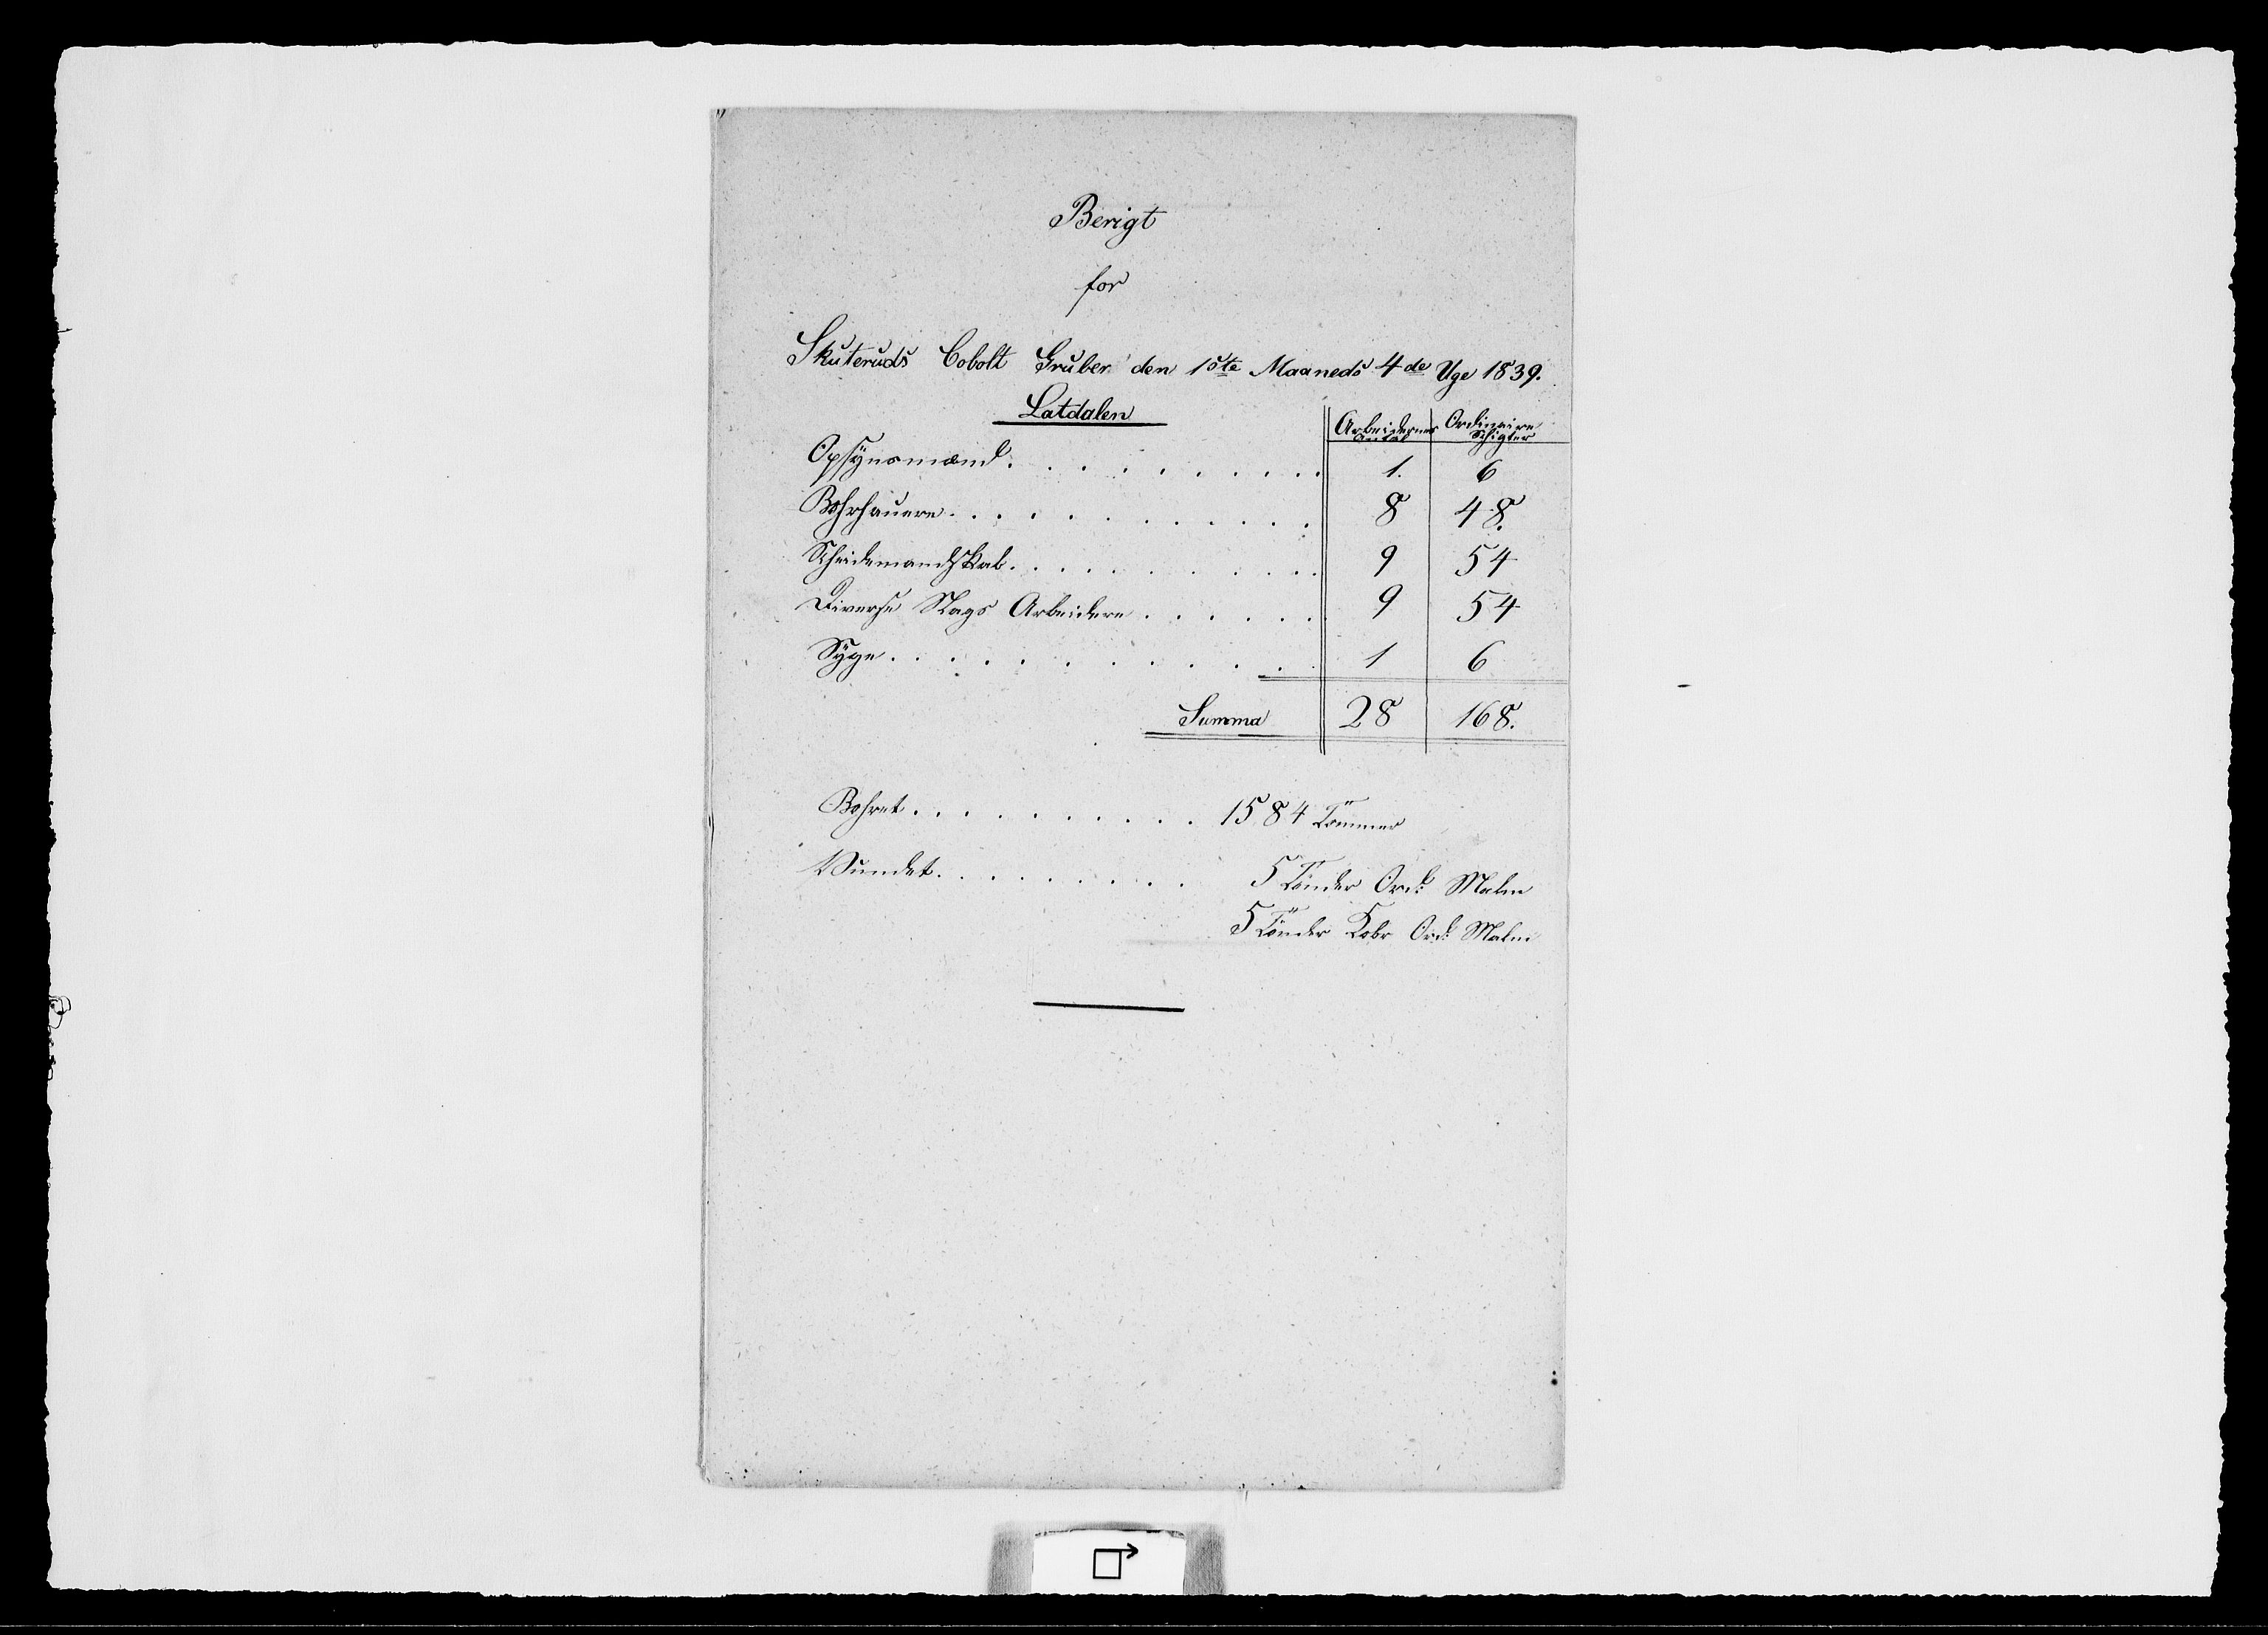 Berigt
for
Skuteruds Cobolt Gruber den 1ste Maaneds 4de Uge 1839.
Latdalen
Arbeidernes Antal | Ordinaire Schigter
Opsynsmænd . . . . . . . . . 1. 6
Bohrhauere . . . . . . . . . . 8 48.
Scheidemandskab . . . . . . . . 9 54
Diverse Slags Arbeidere . . . . . . 9 54
Syge . . . . . . . . . . 1 6
Summa 28 168.
Bohret . . . . . . . . . . 1584 Tömmer
Vundet . . . . . . . . 5 Tönder Ord: Malm
5 Tönder Kobr Ord: Malm